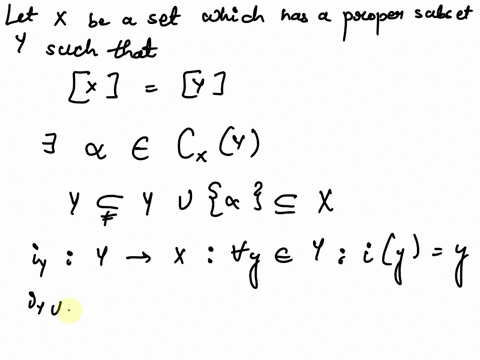 Let X be a set which has a proper subset
Y such that
[X] = [Y]
∃ α ∈ C_X (Y)
Y ⊊ Y ∪ {α} ⊆ X
i_Y : Y → X : ∀y ∈ Y : i(y) = y
i_Y ∪